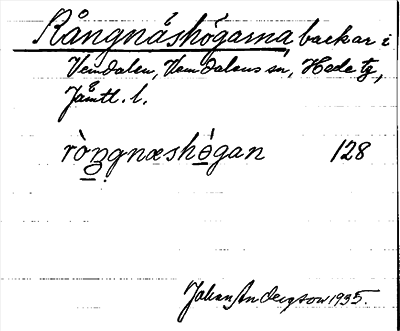 Rångnåshögarna, backar i
Vemdalen, Vemdalens sn, Hede tg,
Jämtl. l.
ròn̲gnæshö̲gan 128
Johan Anderzson 1935.